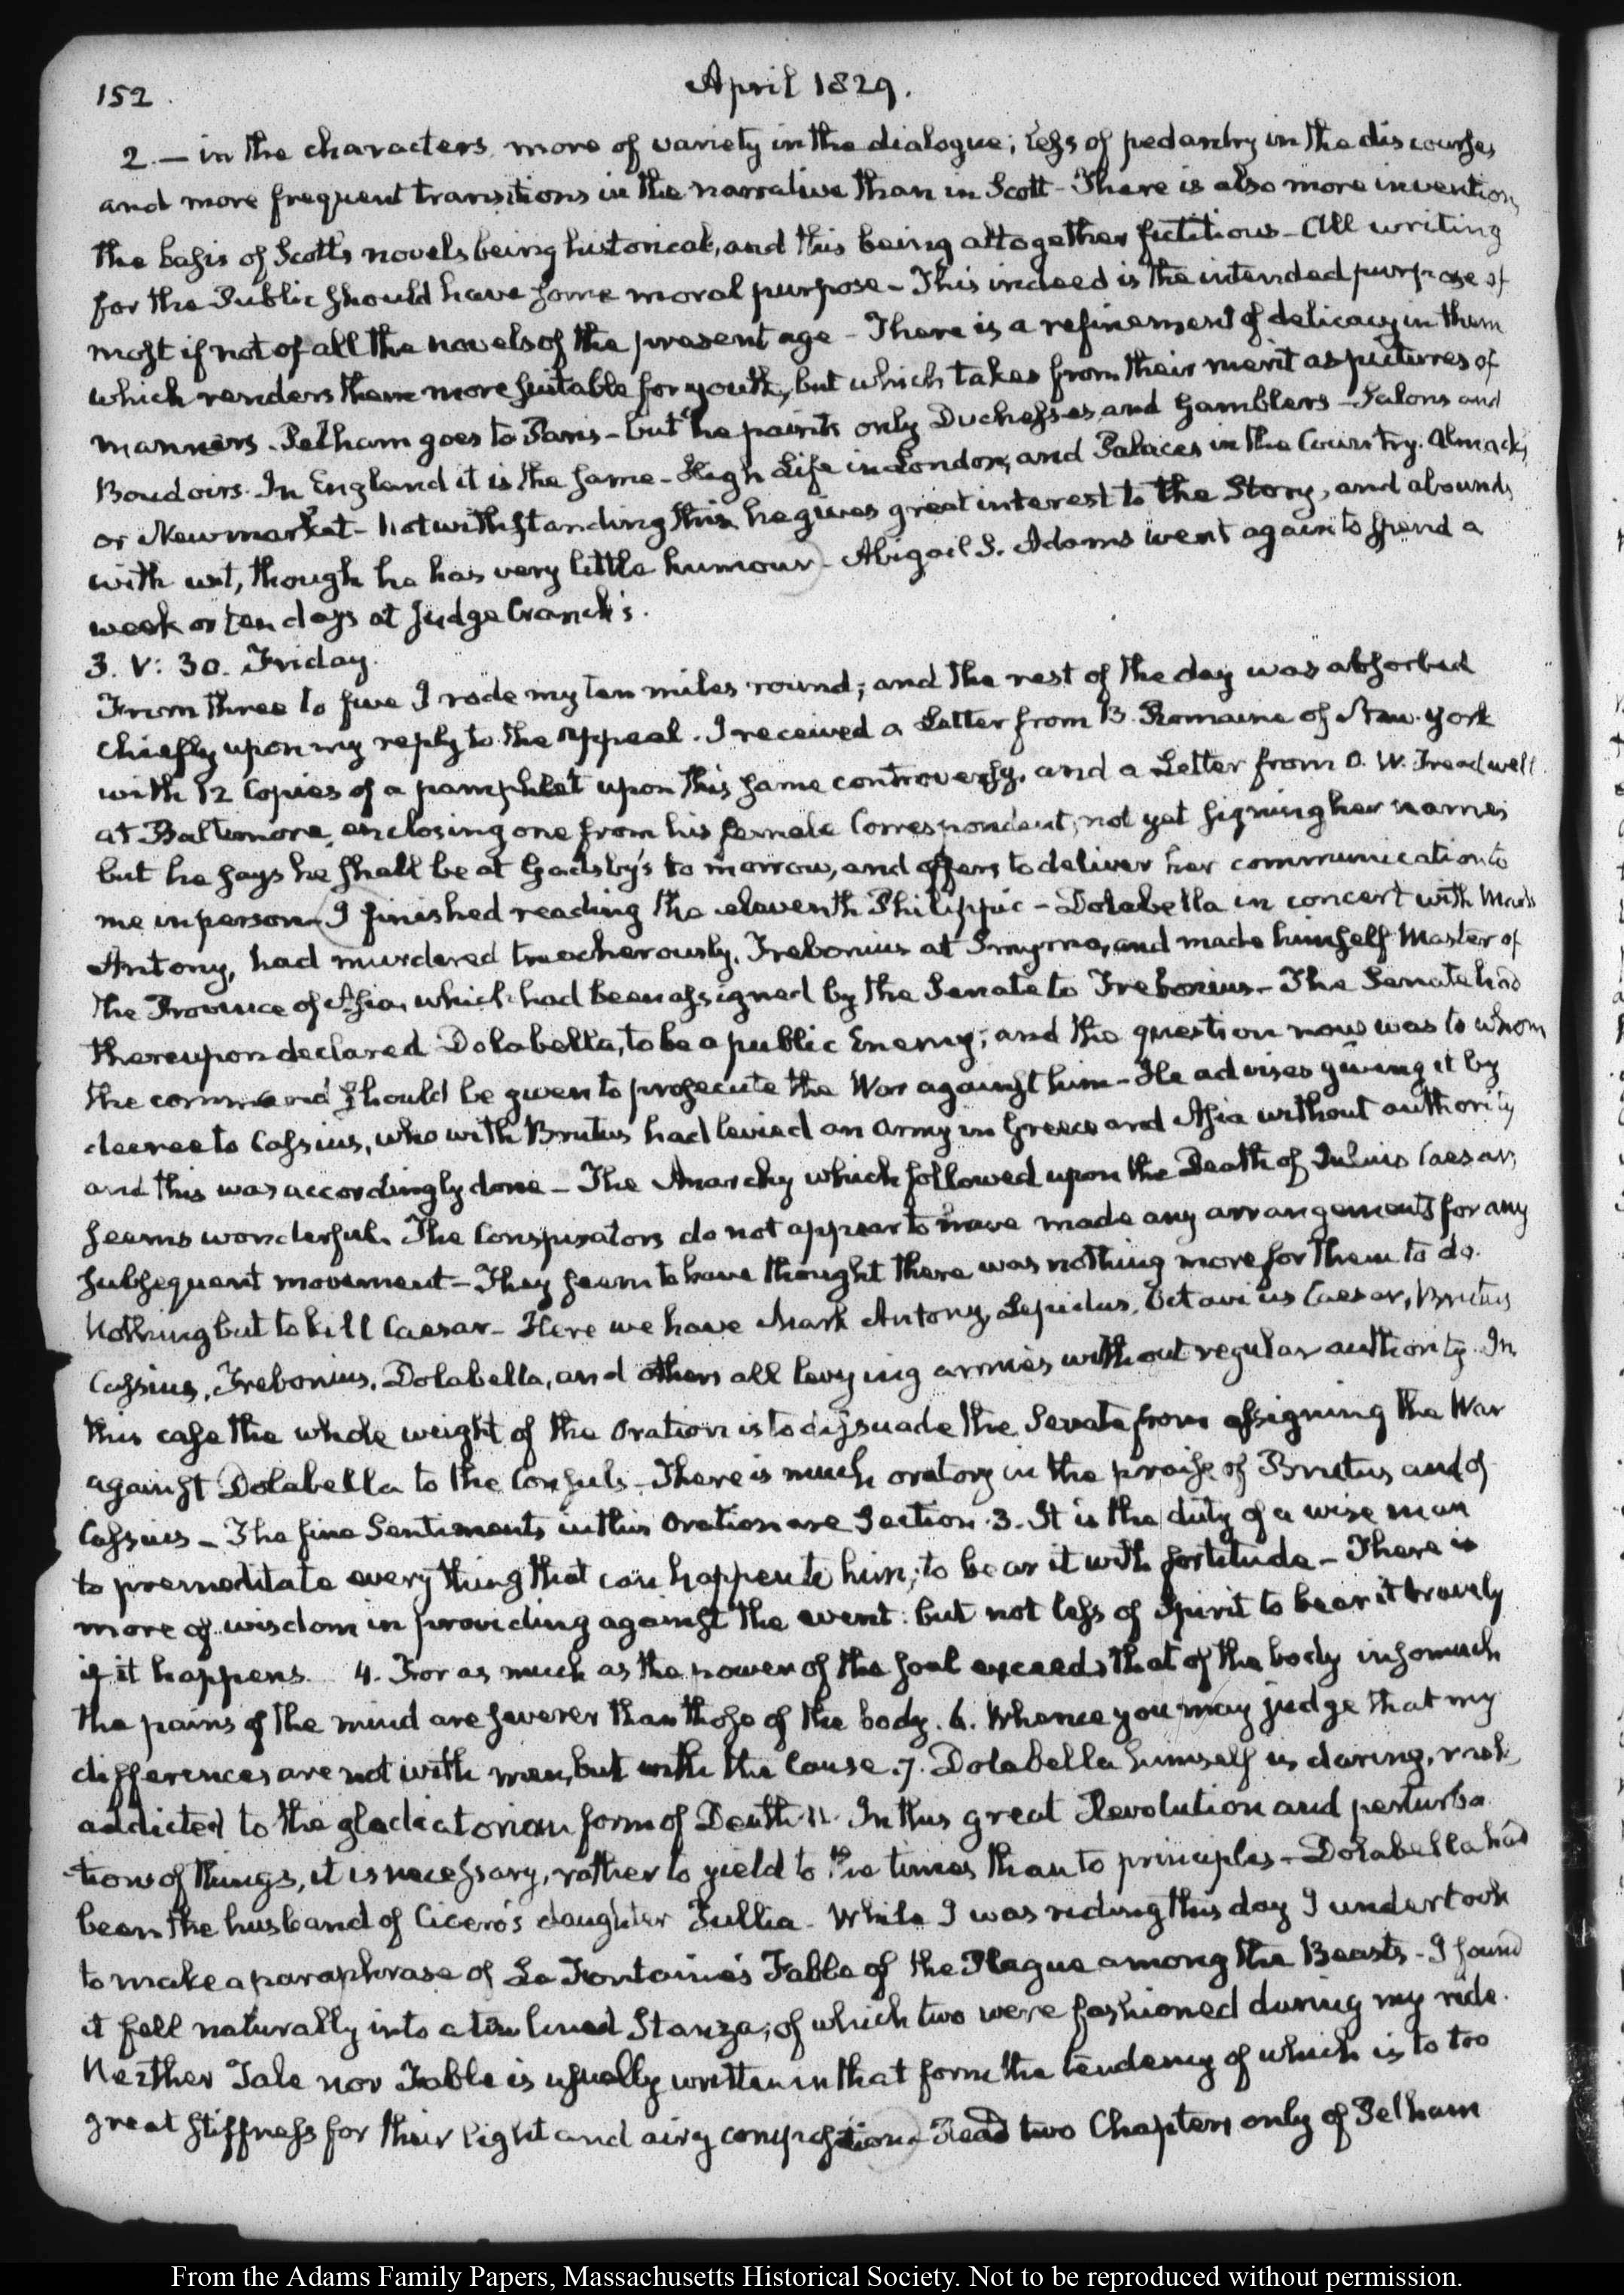 152
April 1829.
2. — in the characters, more of variety in the dialogue; less of pedantry in the discourses,
and more frequent transitions in the narrative than in Scott - There is also more invention,
the basis of Scott's novels being historical, and this being altogether fictitious - All writing
for the Public should have some moral purpose - This indeed is the intended purpose of
most if not of all the novels of the present age - There is a refinement of delicacy in them
which renders them more suitable for youth, but which takes from their merit as pictures of
manners. Pelham goes to Paris - but he paints only Duchesses and Gamblers - Salons and
Boudoirs. In England it is the same - High Life in London, and Palaces in the Country. Almacks,
or Newmarket - Notwithstanding this, he gives great interest to the Story, and abounds
with wit, though he has very little humour - Abigail S. Adams went again to spend a
week or ten days at Judge Cranch's.
3. V: 30. Friday.
From three to five I rode my ten miles round; and the rest of the day was absorbed
chiefly upon my reply to the Appeal. I received a Letter from B. Romaine of New-York
with 12 Copies of a pamphlet upon this same controversy, and a Letter from O. W. Treadwell
at Baltimore, enclosing one from his female Correspondent, not yet signing her name;
but he says he shall be at Gadsby's to morrow, and offers to deliver her communication to
me in person - I finished reading the eleventh Philippic - Dolabella in concert with Mark
Antony, had murdered treacherously, Trebonius at Smyrna, and made himself Master of
the Province of Asia, which had been assigned by the Senate to Trebonius - The Senate had
thereupon declared Dolabella, to be a public Enemy; and the question now was to whom
the command should be given to prosecute the War against him - He advises giving it by
decree to Cassius, who with Brutus had levied an Army in Greece and Asia without authority
and this was accordingly done - The Anarchy which followed upon the Death of Julius Caesar,
seems wonderful. The Conspirators do not appear to have made any arrangements for any
subsequent movement - They seem to have thought there was nothing more for them to do.
Nothing but to kill Caesar - Here we have Mark Antony, Lepidus, Octavius Caesar, Brutus
Cassius, Trebonius, Dolabella, and others all levying armies without regular authority. In
this case the whole weight of the Oration is to dissuade the Senate from assigning the War
against Dolabella to the Consuls - There is much oratory in the praise of Brutus and of
Cassius - The fine Sentiments in this Oration are Section. 3. It is the duty of a wise man
to premeditate every thing that can happen to him; to bear it with fortitude - There is
more of wisdom in providing against the event: but not less of Spirit to bear it bravely
if it happens. 4. For as much as the power of the soul exceeds that of the body insomuch
the pains of the mind are severer than those of the body. 6. Whence you may judge that my
differences are not with men, but with the Cause. 7. Dolabella himself is daring, rash,
addicted to the gladiatorian form of Death. 11. In this great Revolution and perturba
-tions of things, it is necessary, rather to yield to the times than to principles - Dolabella had
been the husband of Cicero's daughter Tullia - While I was riding this day I undertook
to make a paraphrase of La Fontaine's Fable of the Plague among the Beasts - I found
it fell naturally into a ten lined Stanza; of which two were fashioned during my ride.
Neither Tale nor Fable is usually written in that form the tendency of which is to too
great stiffness for their light and airy composition - Read two Chapters only of Pelham
From the Adams Family Papers, Massachusetts Historical Society. Not to be reproduced without permission.